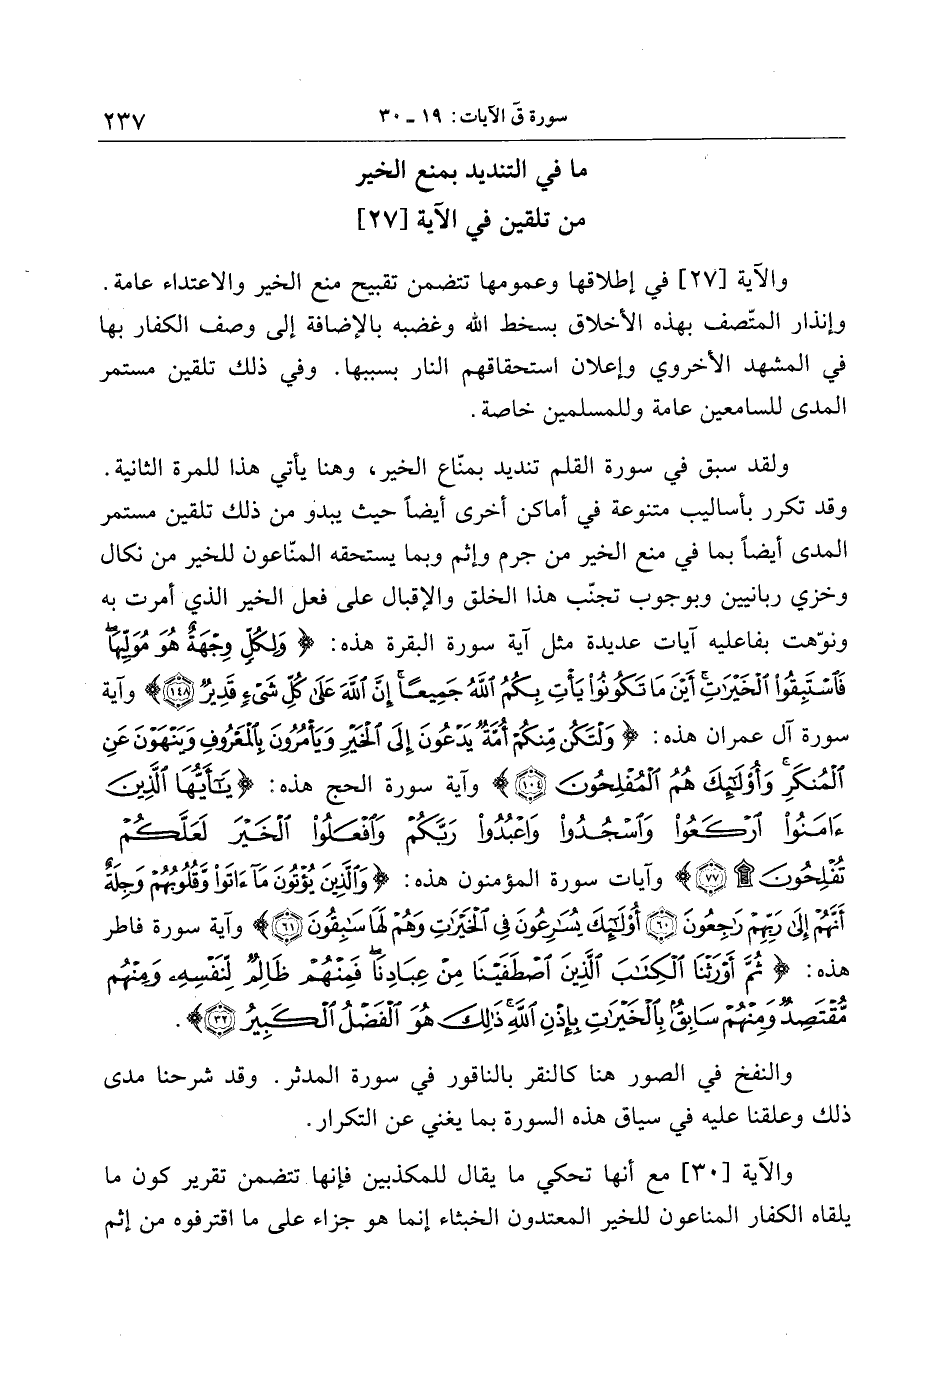 سورة قَ الآيات: ١٩ ـ ٣٠
٢٣٧
ما في التنديد بمنع الخير
من تلقين في الآية [٢٧]
والآية [٢٧] في إطلاقها وعمومها تتضمن تقبيح منع الخير والاعتداء عامة.
وإنذار المتّصف بهذه الأخلاق بسخط الله وغضبه بالإضافة إلى وصف الكفار بها
في المشهد الأخروي وإعلان استحقاقهم النار بسببها. وفي ذلك تلقين مستمر
المدى للسامعين عامة وللمسلمين خاصة.
ولقد سبق في سورة القلم تنديد بمنّاع الخير، وهنا يأتي هذا للمرة الثانية.
وقد تكرر بأساليب متنوعة في أماكن أخرى أيضاً حيث يبدو من ذلك تلقين مستمر
المدى أيضاً بما في منع الخير من جرم وإثم وبما يستحقه المنّاعون للخير من نكال
وخزي ربانيين وبوجوب تجنّب هذا الخلق والإقبال على فعل الخير الذي أمرت به
ونوّهت بفاعليه آيات عديدة مثل آية سورة البقرة هذه: ﴿ وَلِكُلٍّ وِجْهَةٌ هُوَ مُوَلِّيهَاۖ
فَاسْتَبِقُوا۟ ٱلْخَيْرَٰتِۚ أَيْنَ مَا تَكُونُوا۟ يَأْتِ بِكُمُ ٱللَّهُ جَمِيعًاۚ إِنَّ ٱللَّهَ عَلَىٰ كُلِّ شَىْءٍ قَدِيرٌ ١٤٨﴾ وآية
سورة آل عمران هذه: ﴿ وَلْتَكُن مِّنكُمْ أُمَّةٌ يَدْعُونَ إِلَى ٱلْخَيْرِ وَيَأْمُرُونَ بِٱلْمَعْرُوفِ وَيَنْهَوْنَ عَنِ
ٱلْمُنكَرِۚ وَأُو۟لَٰٓئِكَ هُمُ ٱلْمُفْلِحُونَ ١٠٤﴾ وآية سورة الحج هذه: ﴿ يَٰٓأَيُّهَا ٱلَّذِينَ
ءَامَنُوا۟ ٱرْكَعُوا۟ وَٱسْجُدُوا۟ وَٱعْبُدُوا۟ رَبَّكُمْ وَٱفْعَلُوا۟ ٱلْخَيْرَ لَعَلَّكُمْ
تُفْلِحُونَ ۩ ٧٧﴾ وآيات سورة المؤمنون هذه: ﴿ وَٱلَّذِينَ يُؤْتُونَ مَآ ءَاتَوا۟ وَّقُلُوبُهُمْ وَجِلَةٌ
أَنَّهُمْ إِلَىٰ رَبِّهِمْ رَٰجِعُونَ ٦٠ أُو۟لَٰٓئِكَ يُسَٰرِعُونَ فِى ٱلْخَيْرَٰتِ وَهُمْ لَهَا سَٰبِقُونَ ٦١﴾ وآية سورة فاطر
هذه: ﴿ ثُمَّ أَوْرَثْنَا ٱلْكِتَٰبَ ٱلَّذِينَ ٱصْطَفَيْنَا مِنْ عِبَادِنَاۖ فَمِنْهُمْ ظَالِمٌ لِّنَفْسِهِۦ وَمِنْهُم
مُّقْتَصِدٌ وَمِنْهُمْ سَابِقٌۢ بِٱلْخَيْرَٰتِ بِإِذْنِ ٱللَّهِۚ ذَٰلِكَ هُوَ ٱلْفَضْلُ ٱلْكَبِيرُ ٣٢﴾.
والنفخ في الصور هنا كالنقر بالناقور في سورة المدثر. وقد شرحنا مدى
ذلك وعلقنا عليه في سياق هذه السورة بما يغني عن التكرار.
والآية [٣٠] مع أنها تحكي ما يقال للمكذبين فإنها تتضمن تقرير كون ما
يلقاه الكفار المناعون للخير المعتدون الخبثاء إنما هو جزاء على ما اقترفوه من إثم